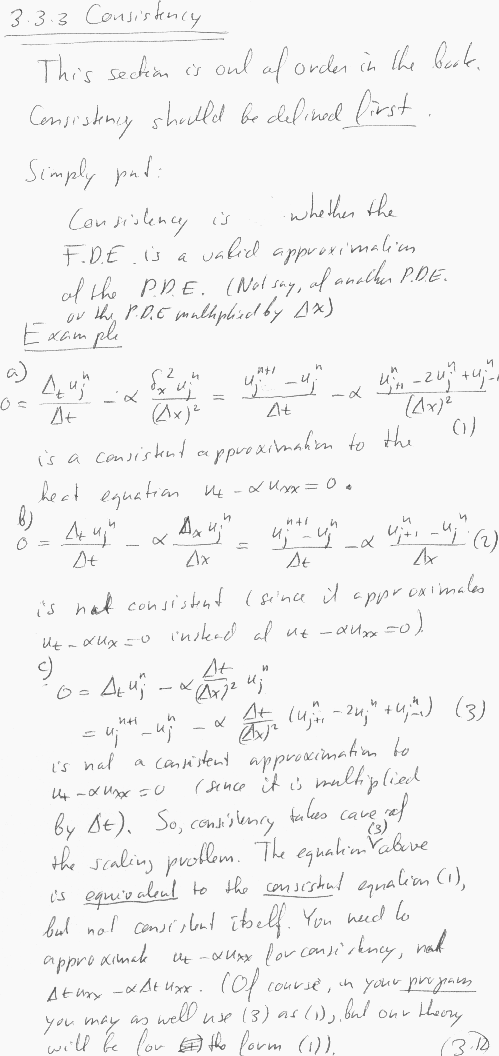 3.3.3 Consistency
This section is out of order in the book.
Consistency should be defined first.
Simply put:
Consistency is whether the
F.D.E. is a valid approximation
of the P.D.E. (Not say, of another P.D.E.
or the P.D.E multiplied by Δx)
Example
a)
0 = Δ_t u_j^n / Δt - α δ_x^2 u_j^n / (Δx)^2 = (u_j^{n+1} - u_j^n) / Δt - α (u_{j+1}^n - 2u_j^n + u_{j-1}^n) / (Δx)^2
(1)
is a consistent approximation to the
heat equation u_t - αu_xx = 0.
b)
0 = Δ_t u_j^n / Δt - α Δ_x u_j^n / Δx = (u_j^{n+1} - u_j^n) / Δt - α (u_{j+1}^n - u_j^n) / Δx (2)
is not consistent (since it approximates
u_t - αu_x = 0 instead of u_t - αu_xx = 0).
c)
0 = Δ_t u_j^n - α Δt / (Δx)^2 u_j^n
= u_j^{n+1} - u_j^n - α Δt / (Δx)^2 (u_{j+1}^n - 2u_j^n + u_{j-1}^n) (3)
is not a consistent approximation to
u_t - αu_xx = 0 (since it is multiplied
by Δt). So, consistency takes care of
the scaling problem. The equation (3) above
is equivalent to the consistent equation (1),
but not consistent itself. You need to
approximate u_t - αu_xx for consistency, not
Δt u_xx - αΔt u_xx. (Of course, in your program
you may as well use (3) as (1), but our theory
will be for the form (1)).